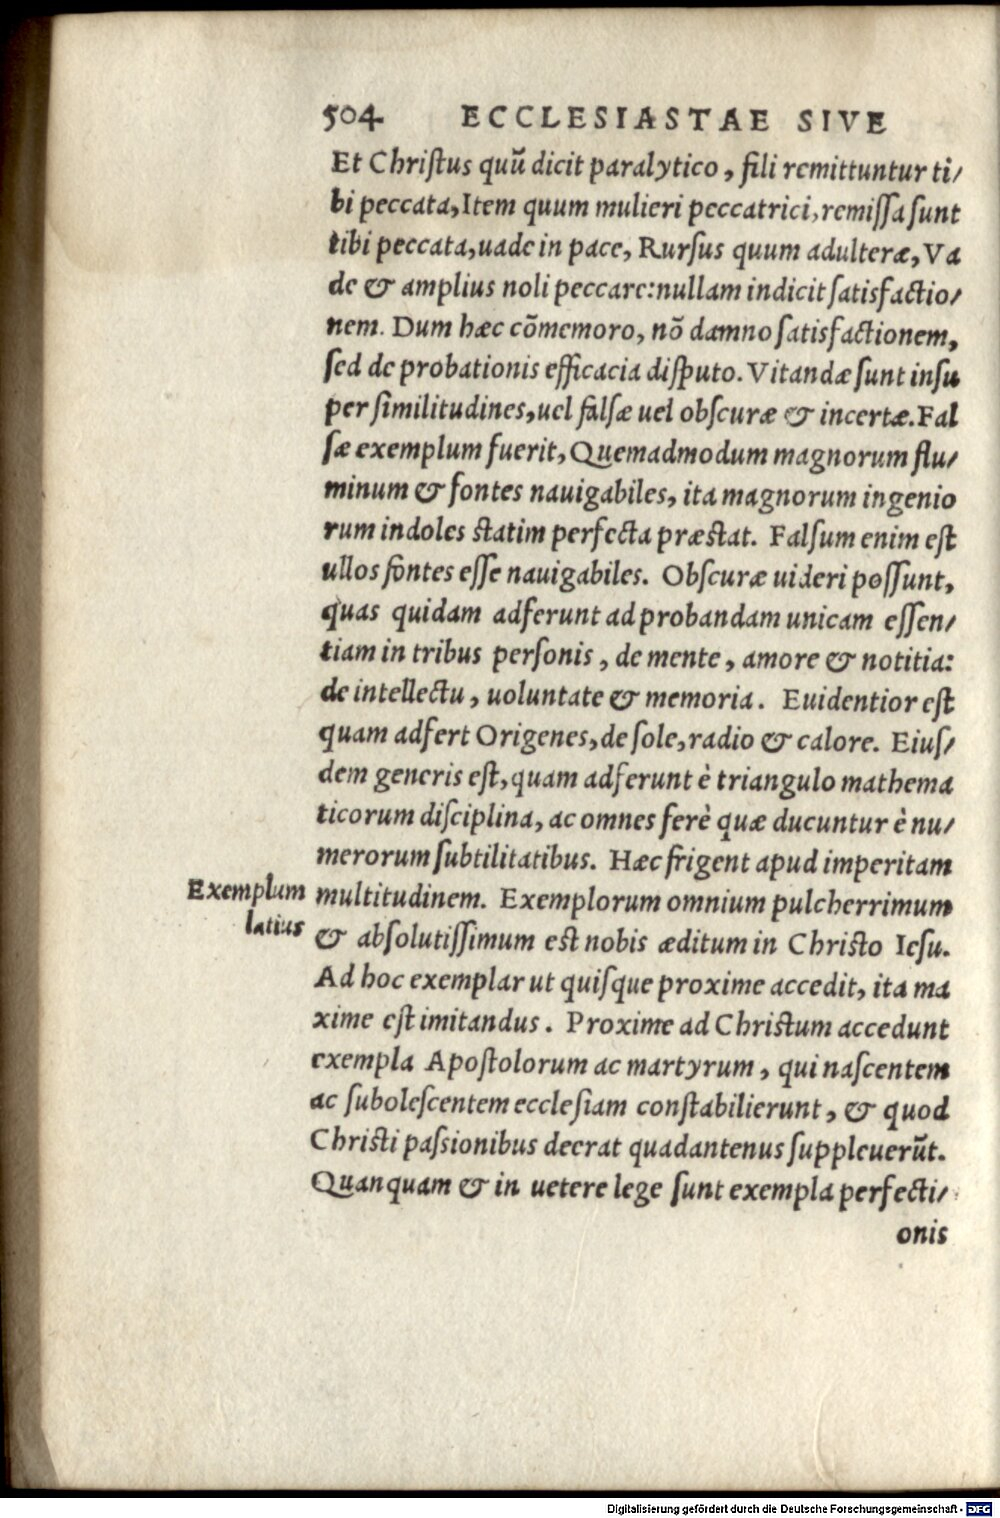 504 ECCLESIASTAE SIVE
Et Chriſtus quū dicit paralytico, fili remittuntur ti/
bi peccata, Item quum mulieri peccatrici, remiſſa ſunt
tibi peccata, uade in pace, Rurſus quum adulteræ, Va
de & amplius noli peccare: nullam indicit ſatisfactio/
nem. Dum hæc cōmemoro, nō damno ſatisfactionem,
ſed de probationis efficacia diſputo. Vitandæ ſunt inſu
per ſimilitudines, uel falſæ uel obſcuræ & incertæ. Fal
ſæ exemplum fuerit, Quemadmodum magnorum flu/
minum & fontes nauigabiles, ita magnorum ingenio
rum indoles statim perfecta præstat. Falſum enim eſt
ullos fontes eſſe nauigabiles. Obſcuræ uideri poſſunt,
quas quidam adferunt ad probandam unicam eſſen/
tiam in tribus perſonis, de mente, amore & notitia:
de intellectu, uoluntate & memoria. Euidentior eſt
quam adfert Origenes, de ſole, radio & calore. Eiuſ/
dem generis eſt, quam adferunt è triangulo mathema
ticorum diſciplina, ac omnes ferè quæ ducuntur è nu/
merorum ſubtilitatibus. Hæc frigent apud imperitam
Exemplum latius
multitudinem. Exemplorum omnium pulcherrimum
& abſolutiſſimum est nobis æditum in Christo Ieſu.
Ad hoc exemplar ut quiſque proxime accedit, ita ma
xime eſt imitandus. Proxime ad Christum accedunt
exempla Apoſtolorum ac martyrum, qui naſcentem
ac ſuboleſcentem eccleſiam conſtabilierunt, & quod
Christi paſsionibus deerat quadantenus ſuppleuerūt.
Quanquam & in uetere lege ſunt exempla perfecti/
onis
Digitalisierung gefördert durch die Deutsche Forschungsgemeinschaft - DFG